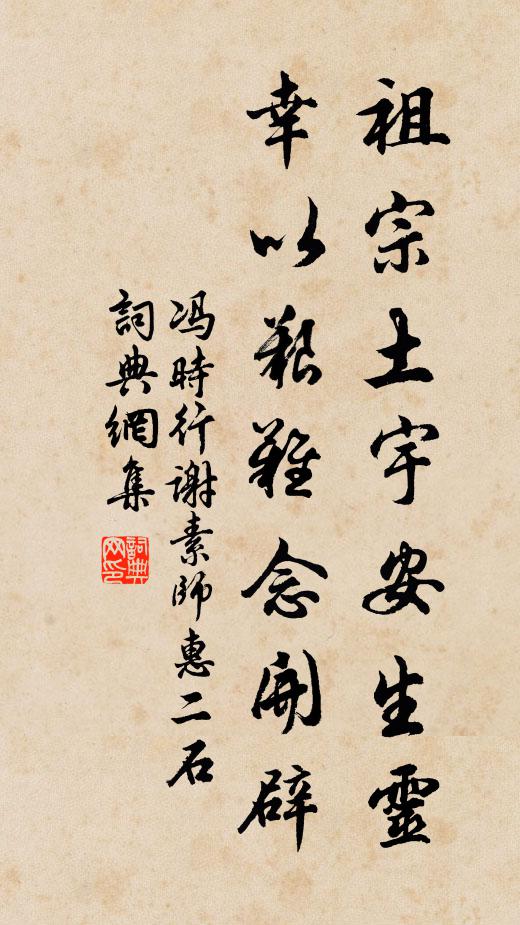 祖宗土宇安生靈
幸以艱難念開辟
冯時行謝素師惠二石
詞典網集
詞典
网印